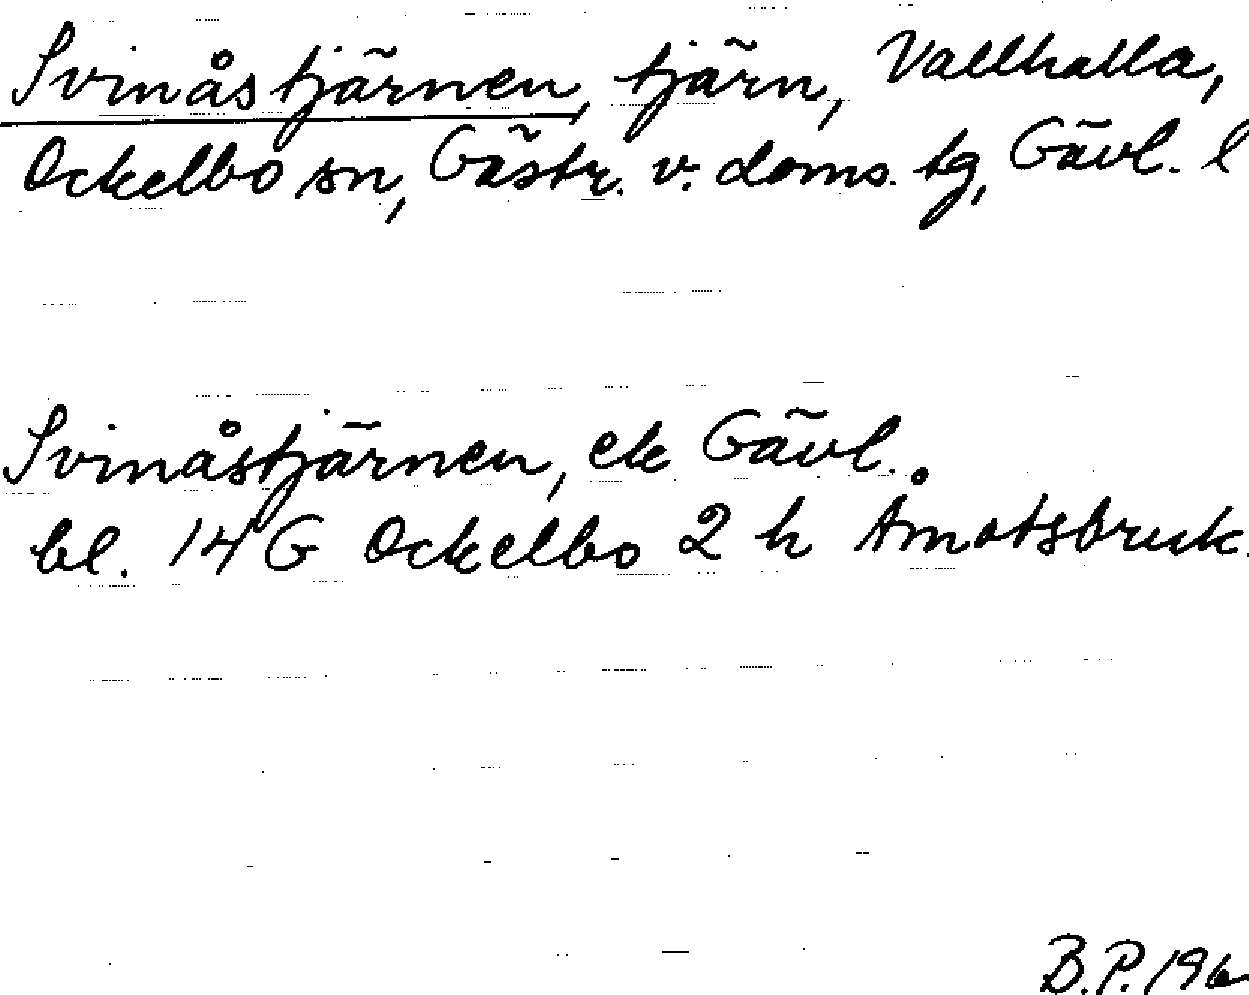 Svinåstjärnen, tjärn, Vallhalla,
Ockelbo sn, Gästr. v. doms. tg, Gävl. l
Svinåstjärnen, ek Gävl.
bl. 14 G Ockelbo 2 h Åmotsbruk.
B.P. 196